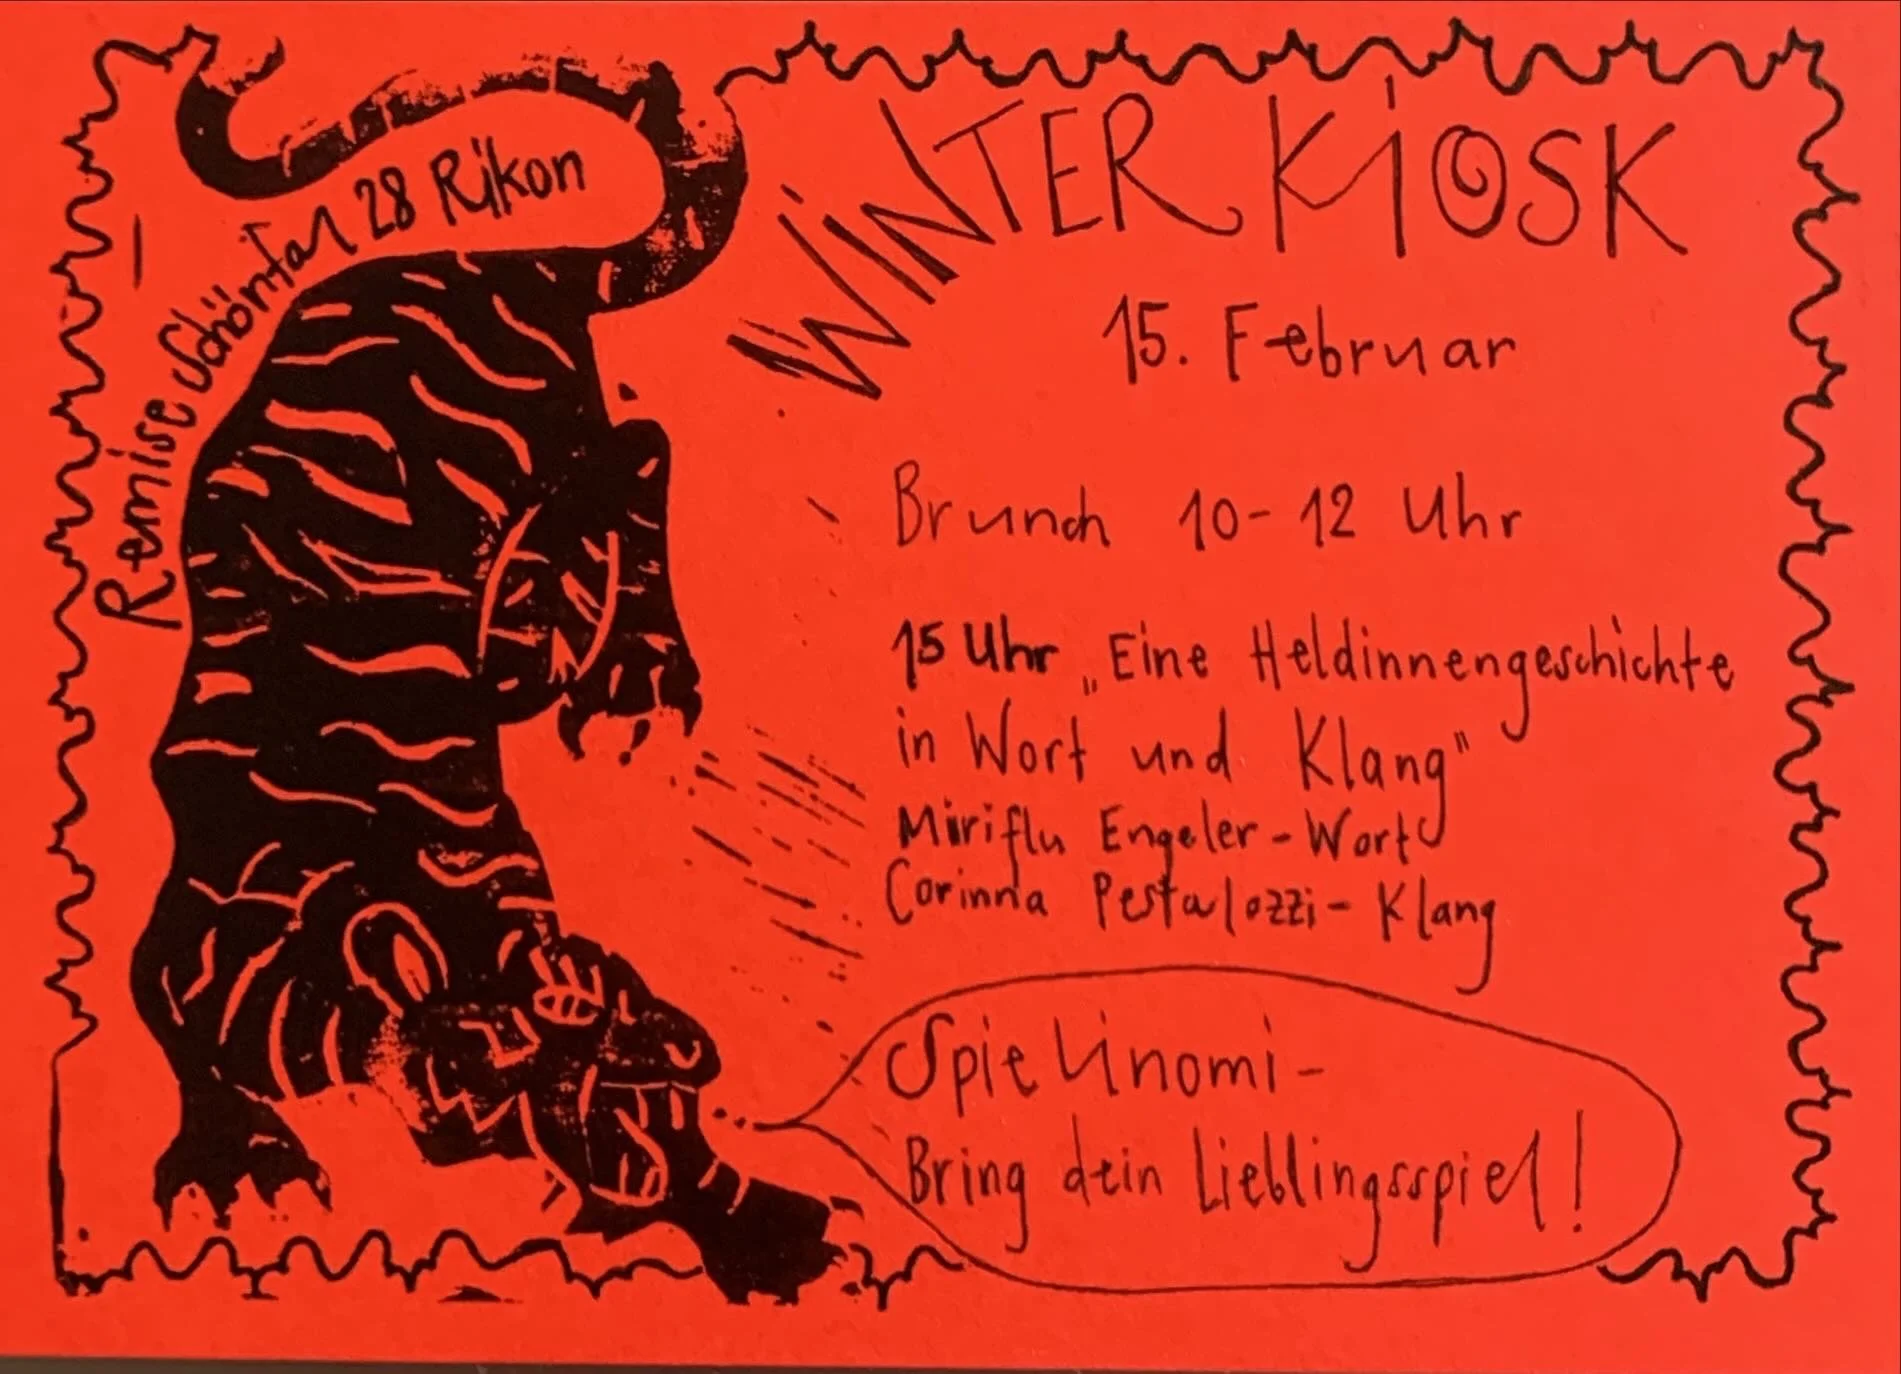 Remise Schöntal 28 Rikon
WINTER KIOSK
15. Februar
Brunch 10-12 Uhr
15 Uhr „Eine Heldinnengeschichte
in Wort und Klang"
Miriflu Engeler - Wort
Corinna Pestalozzi - Klang
Spielinomi -
Bring dein Lieblingsspiel!